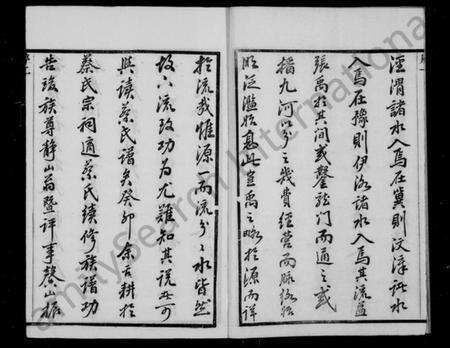 涇渭諸水入焉在冀則汶漳諸水
入焉在豫則伊洛諸水入焉其流益
張禹於其間或鑿龍門而通之或
播九河以分之幾費經營而脈絡
氾濫始息此豈禹之略於源而詳
於流哉惟源一而流分之水皆然
故下流改功為尤難知其說者可
與讀蔡氏譜矣癸卯余舌耕於
蔡氏宗祠適蔡氏續修族譜功
告竣族尊靜山翁暨評事馨山
amilySearch International